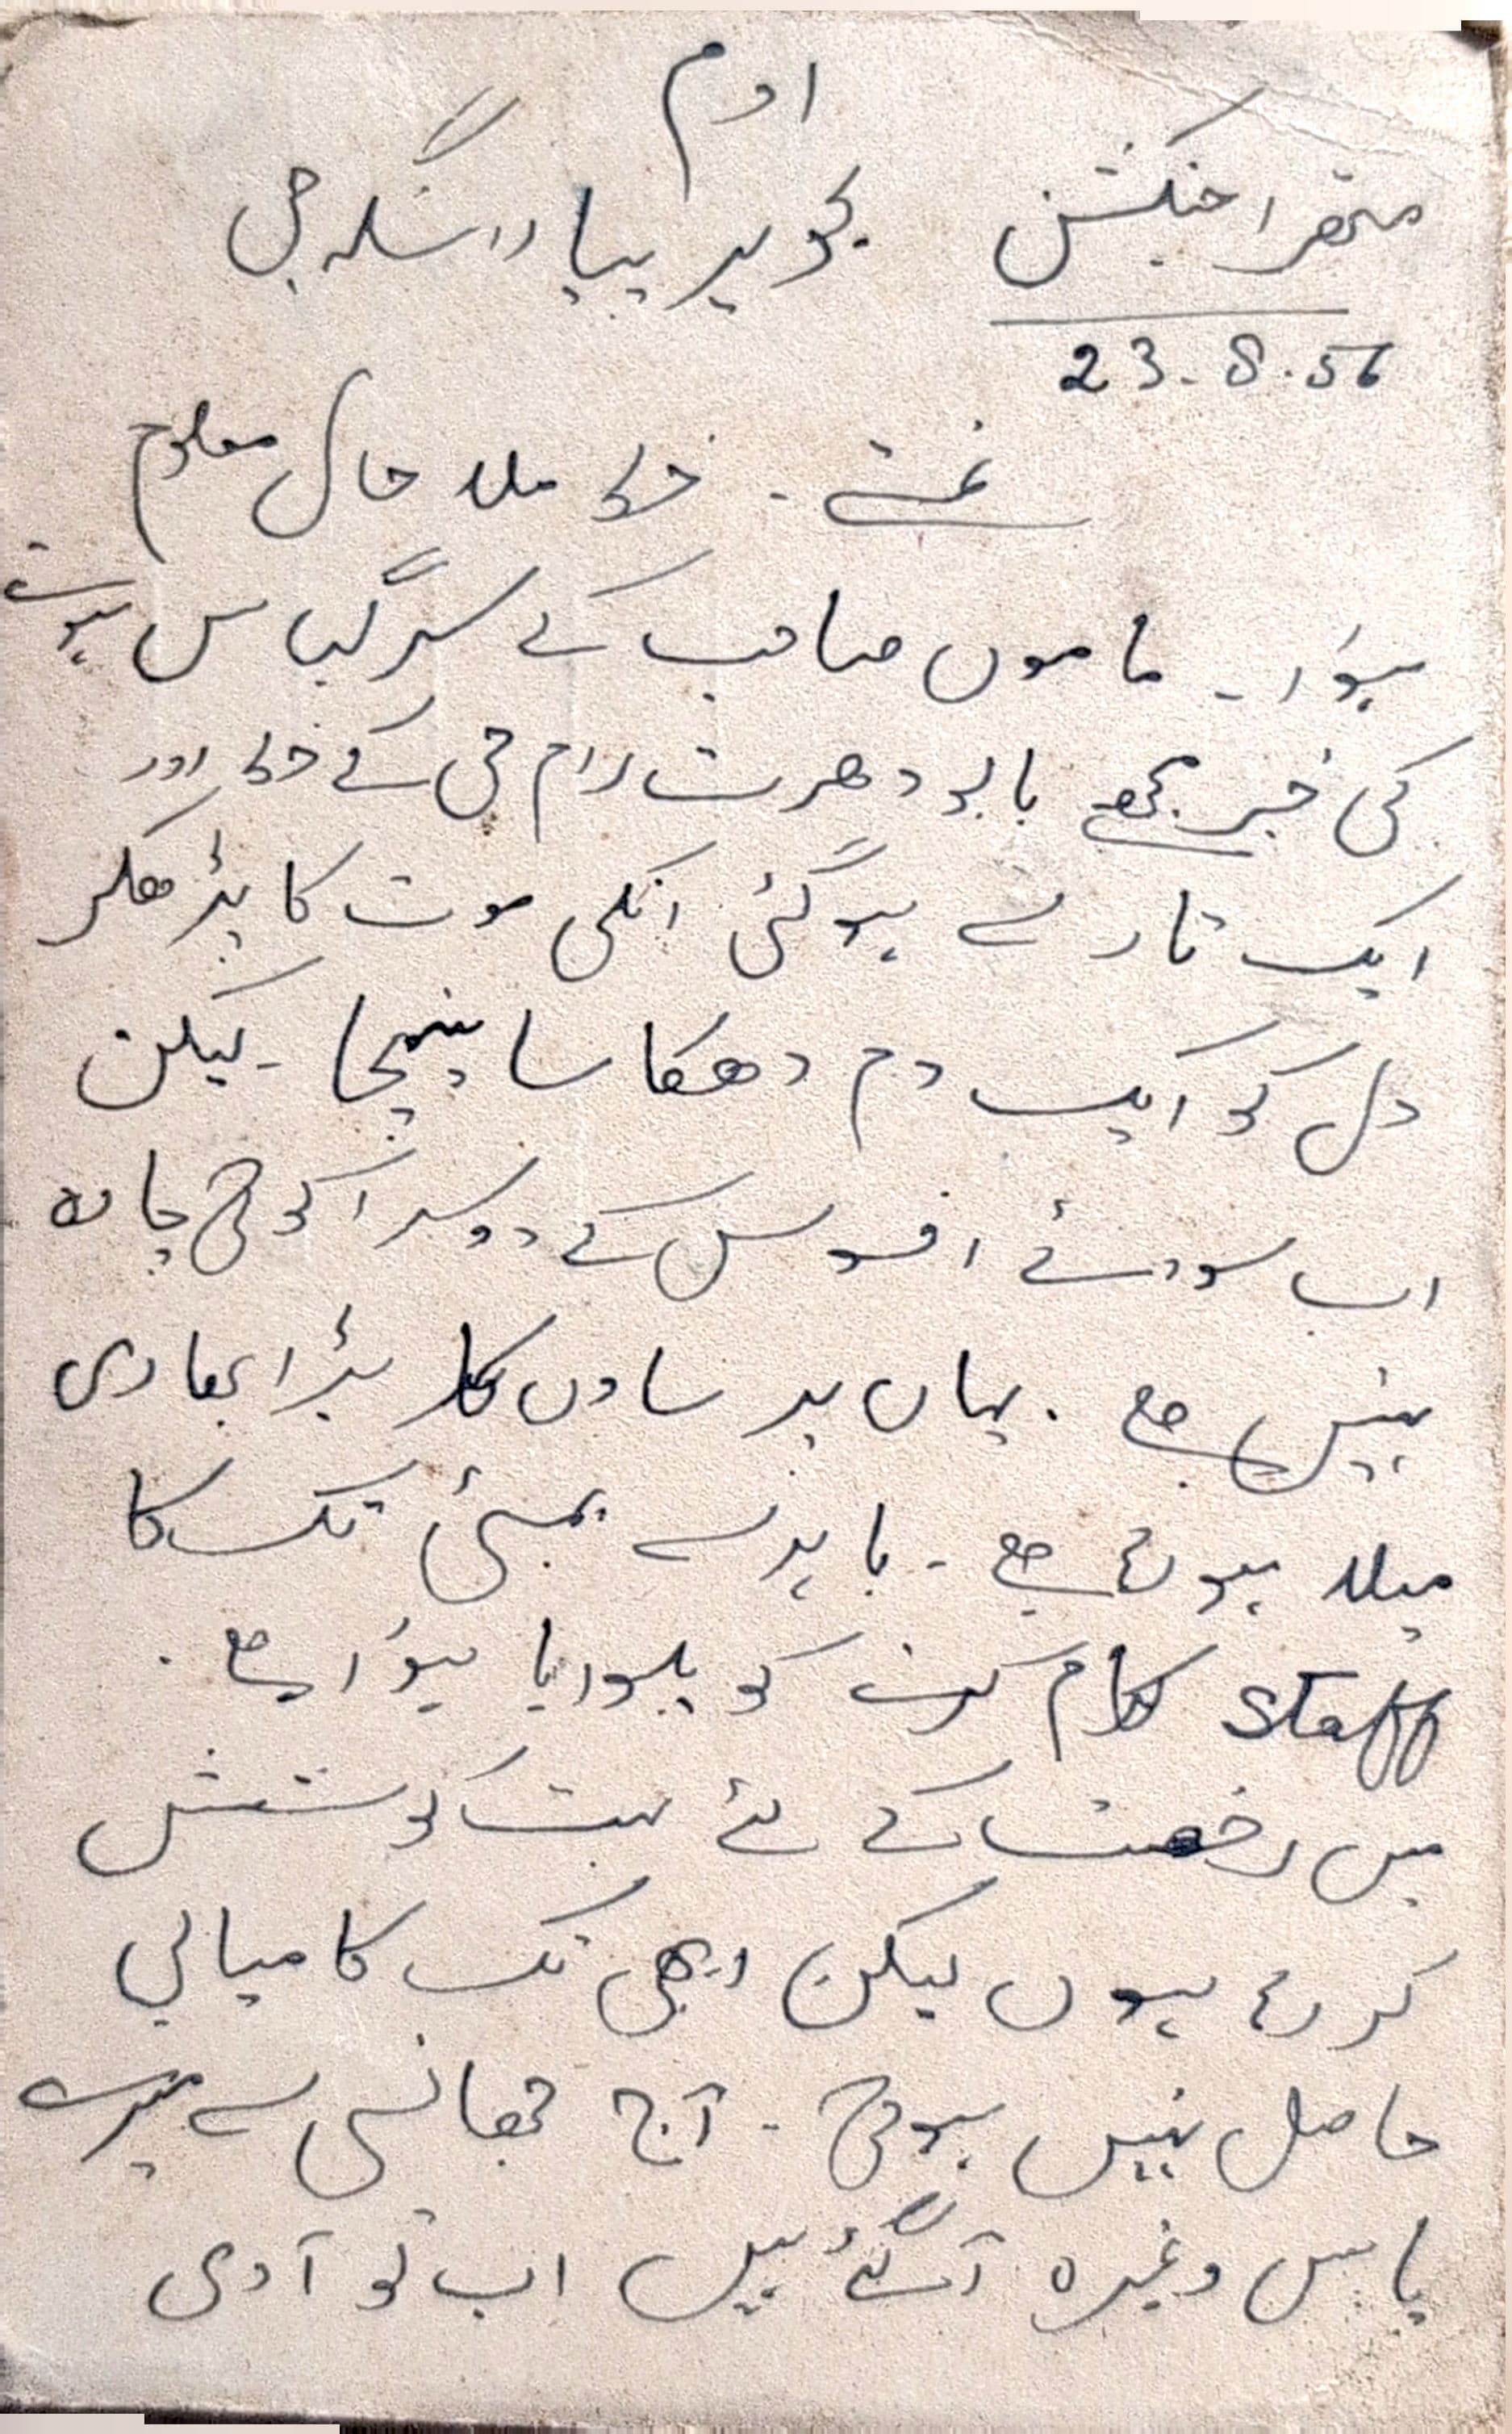 اوم
متھرا جنکشن پیارا سنگھ جی
23.8.56
نمستے ۔ خط ملا حال معلوم
ہوٴا ۔ ماموں صاحب کے سرگباس ہونے
کی خبر مجھے بابو دھرت رام جی کے خط اور
ایک تار سے ہوگئی انکی موت کا پڑھکر
دل کو ایک دم دھکا سا پہنچا ۔ لیکن
اب سوائے افسوس کے دوسرا کوئی چارہ
نہیں ہے ۔ یہاں پر ساون کا بڑا بھاری
میلہ ہورہا ہے ۔ باہر سے بمبئی تک کا
Staff کام کرنے کو بلوایا ہوٴا ہے ۔
میں رخصت کے لئے بہت کوشش
کر رہا ہوں لیکن ابھی تک کامیابی
حاصل نہیں ہوئی ۔ آج جھانسی سے میرے
پاس وغیرہ آگئے ہیں اب تو آدمی